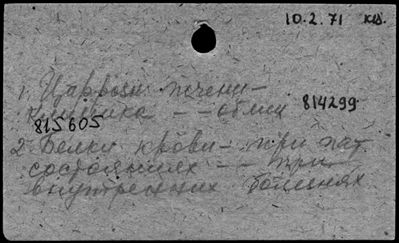 10.2.71 кв.
1. Цирроз печени-
клиника - - обмен 814299
815605
2. Белки крови - при пат.
состояниях - - при
внутренних болезнях